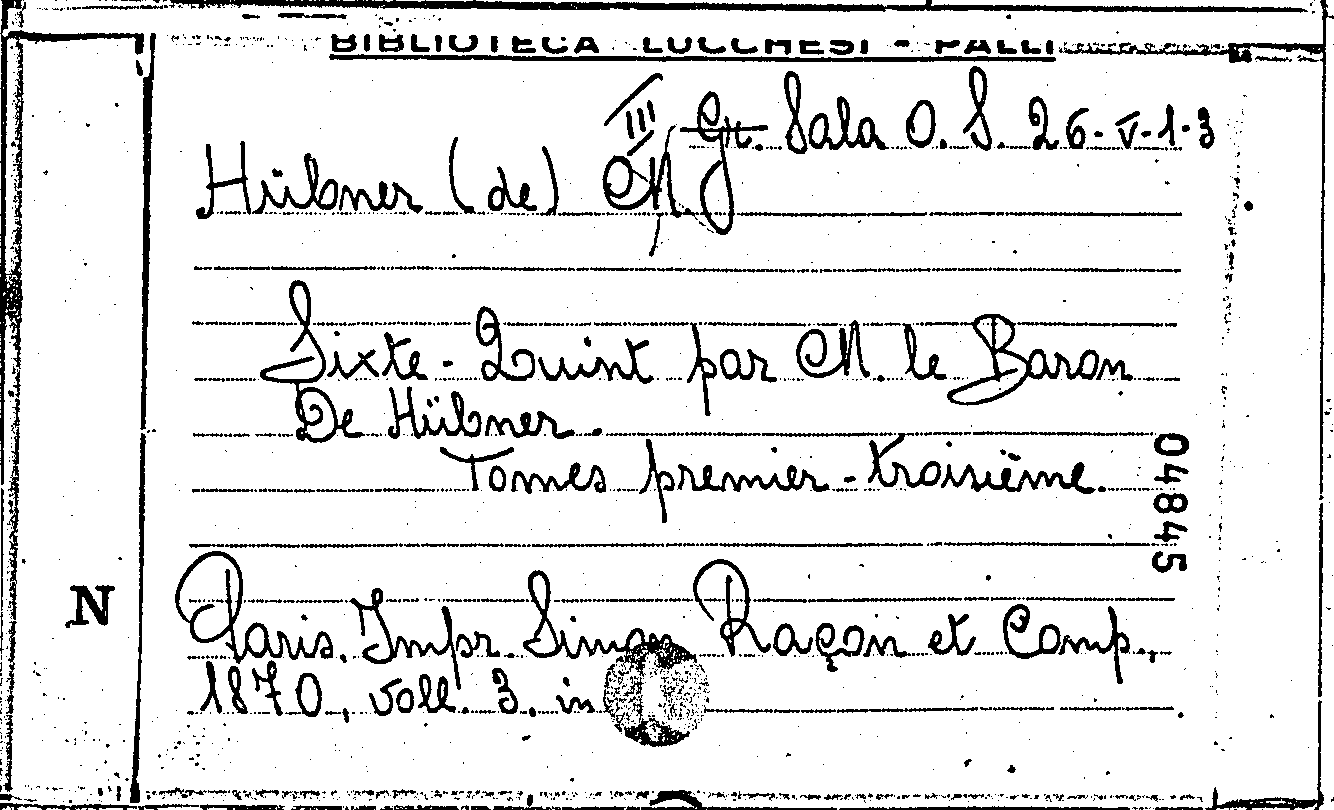 BIBLIOTECA LUCCHESI - PALLI
III Gr. Sala O. S. 26-V-1-3
Hübner (de) M. J
Sixte-Quint par M. le Baron
De Hübner.
Tomes premier-troisième.
04845
N
Paris. Impr. Simon Raçon et Comp.,
1870, voll. 3. in